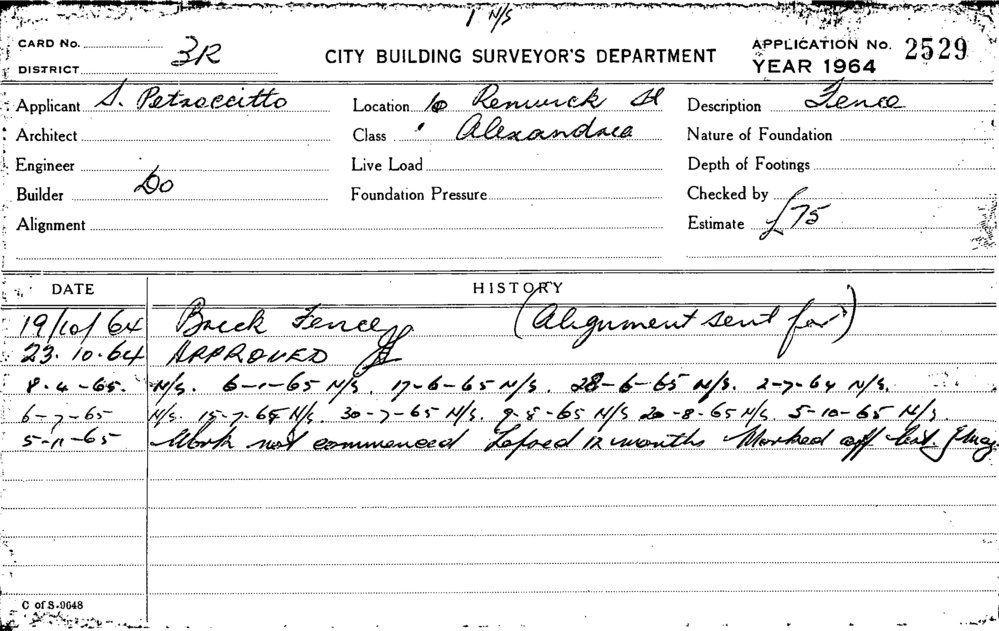 1 N/S
CARD No. 3R CITY BUILDING SURVEYOR'S DEPARTMENT APPLICATION No. 2529
DISTRICT YEAR 1964
Applicant S. Petroccitto Location 10 Renwick St Description Fence
Architect Class Alexandria Nature of Foundation
Engineer Live Load Depth of Footings
Builder Do Foundation Pressure Checked by
Alignment Estimate £75
DATE HISTORY
19/10/64 Brick Fence (Alignment sent for)
23.10.64 APPROVED
8-4-65. N/S. 6-1-65 N/S. 17-6-65 N/S. 28-6-65 N/S. 2-7-64 N/S.
6-7-65 N/S. 15-7-65 N/S. 30-7-65 N/S. 9-8-65 N/S 20-8-65 N/S. 5-10-65 N/S.
5-11-65 Work not commenced Lapsed 12 months Marked off list.
C of S-9648